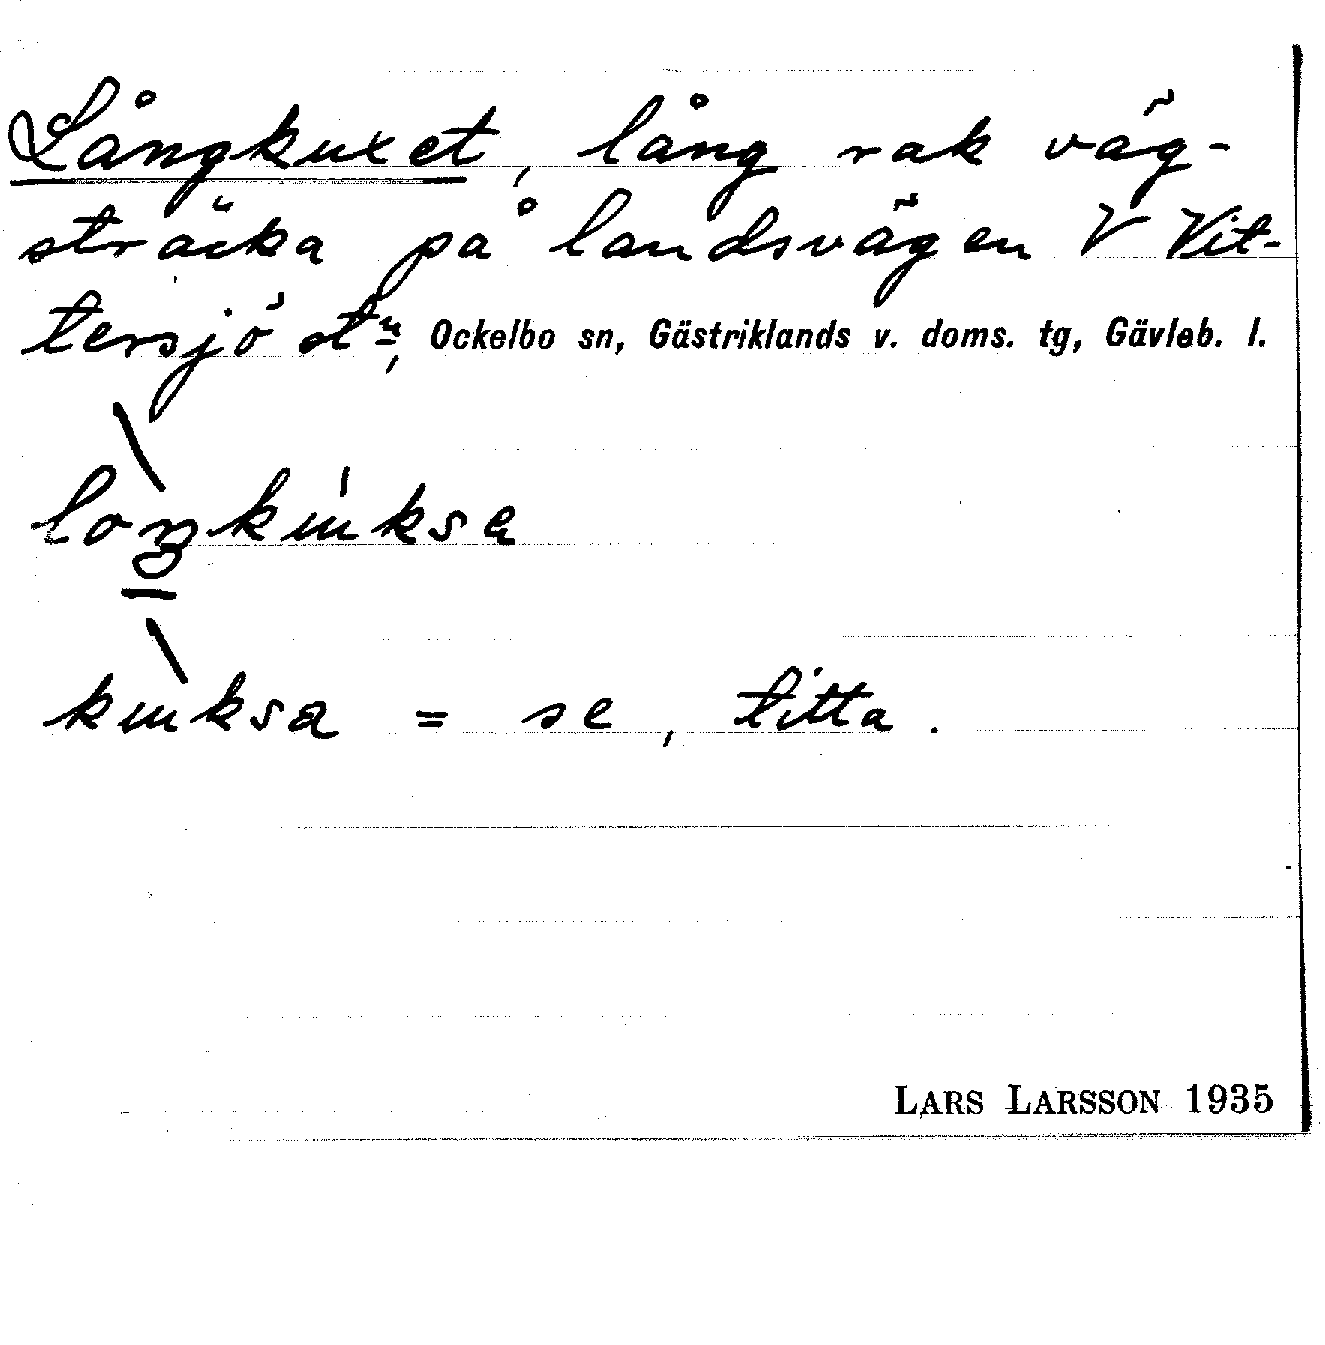 Långkuxet, lång rak väg-
sträcka på landsvägen V Vit-
tersjö stn, Ockelbo sn, Gästriklands v. doms. tg, Gävleb. l.
kuksa = se, titta.
LARS LARSSON 1935